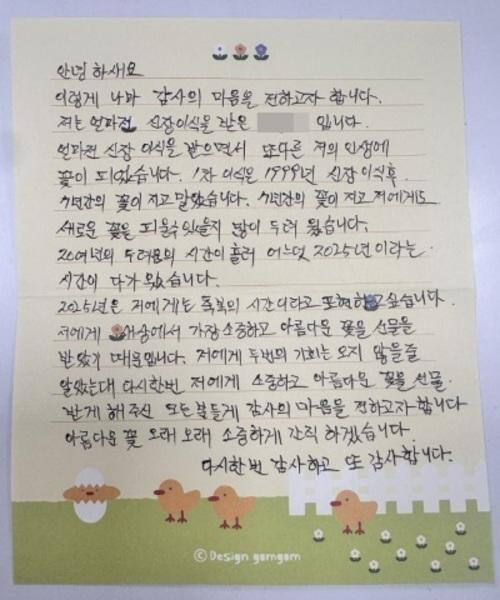 안녕 하세요
이렇게 나마 감사의 마음을 전하고자 합니다.
저는 얼마전 신장이식을 받은 입니다.
얼마전 신장 이식을 받으면서 또다른 저의 인생에
꽃이 피었습니다. 1차 이식은 1999년 신장 이식후
7년간의 꽃이 지고 말았습니다. 7년간의 꽃이 지고 저에게도
새로운 꽃을 피울수있을지 많이 두려 웠습니다.
20여년의 두려움의 시간이 흘러 어느덧 2025년 이라는
시간이 다가 왔습니다.
2025년은 저에게는 축복의 시간이라고 표현하고싶습니다.
저에게 세상에서 가장 소중하고 아름다운 꽃을 선물을
받았기 때문입니다. 저에게 두번의 기회는 오지 않을줄
알았는대 다시한번 저에게 소중하고 아름다운 꽃을 선물
받게 해주신 모든분들게 감사의 마음을 전하고자 합니다
아름다운 꽃 오래 오래 소중하게 간직 하겠습니다.
다시한번 감사하고 또 감사합니다.
ⓒ Design gomgom